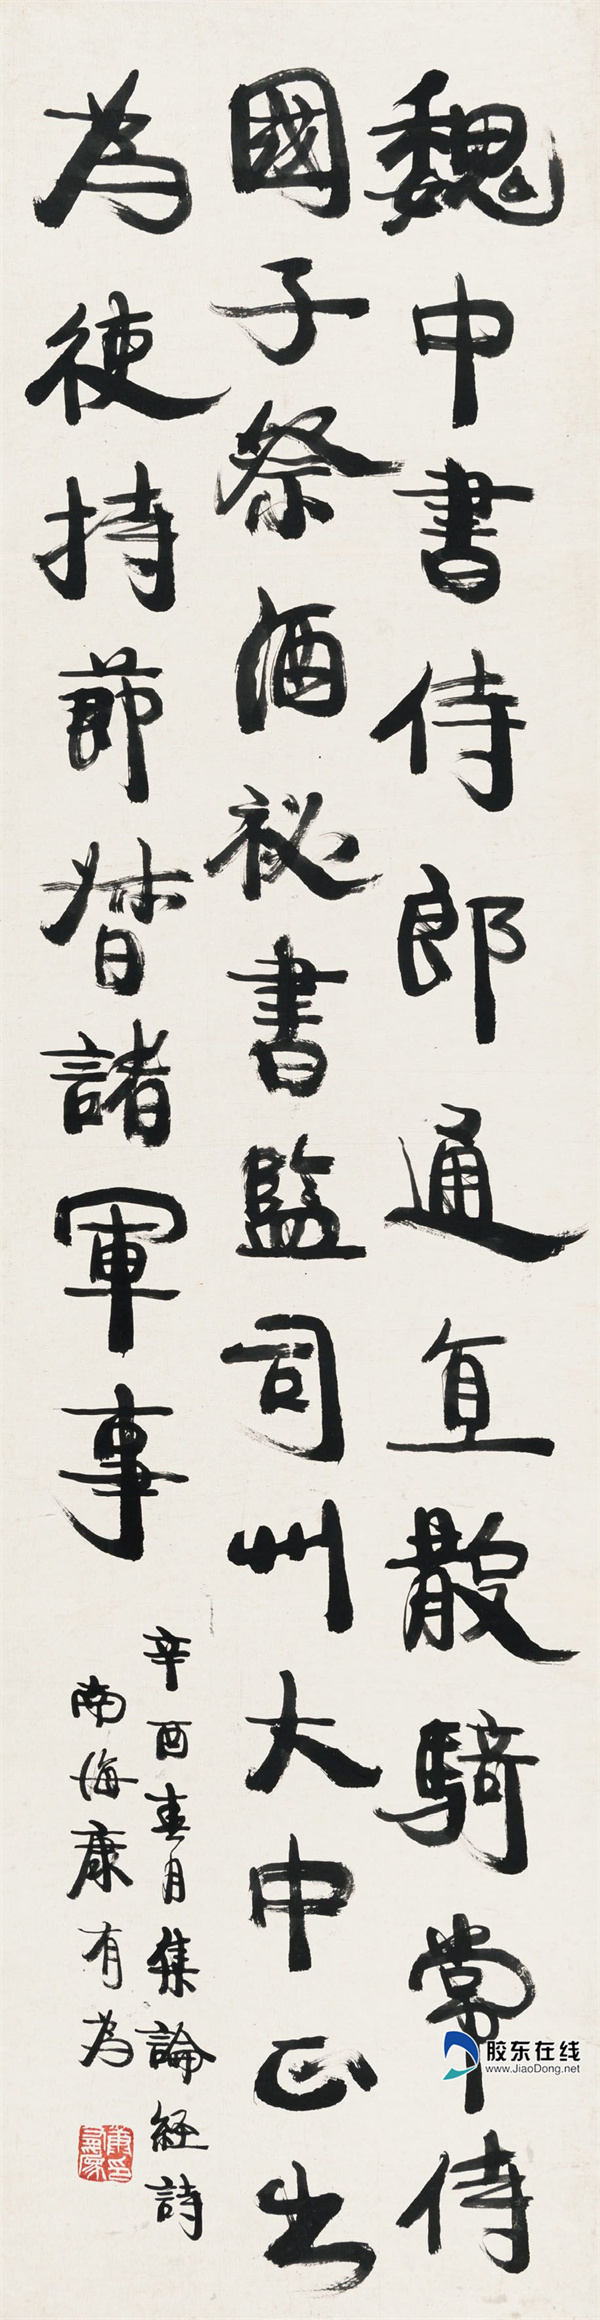 魏中書侍郎通直散騎常侍
國子祭酒祕書監司州大中正出
為使持節督諸軍事
辛酉春月集論經詩
南海康有為
胶东在线
www.JiaoDong.net